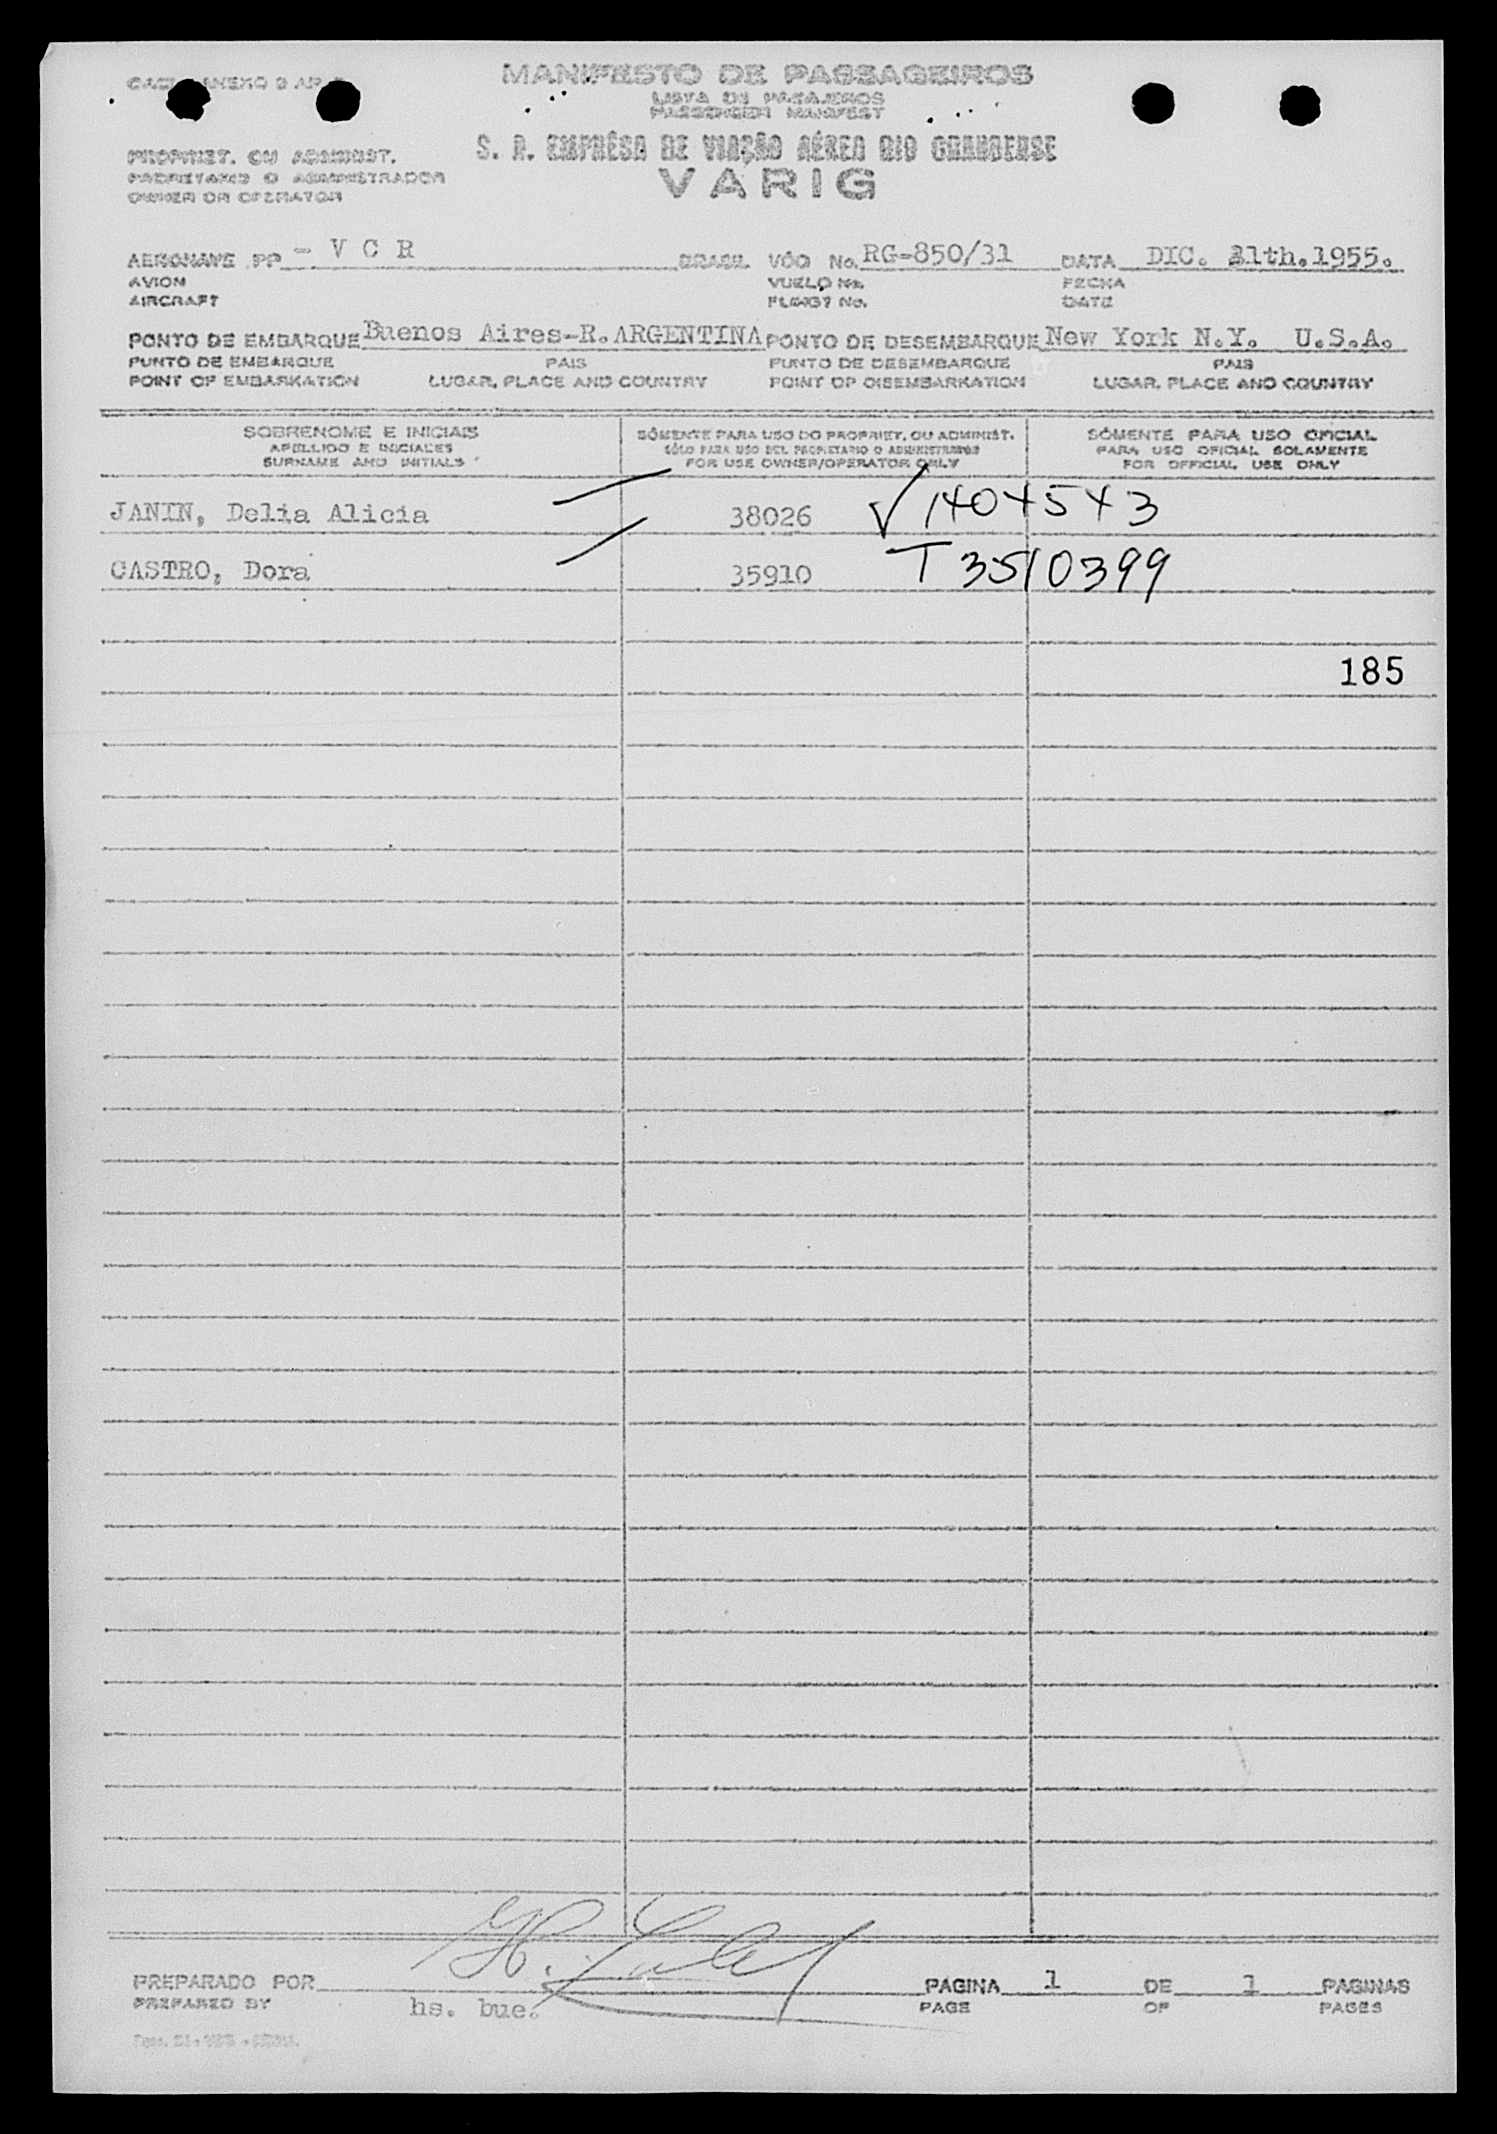 MANIFESTO DE PASSAGEIROS
LISTA DE PASAJEROS
PASSENGER MANIFEST
S. A. EMPRÊSA DE VIAÇÃO AÉREA RIO GRANDENSE
VARIG
PROPRIET. OU ADMINIST.
PROPIETARIO O ADMINISTRADOR
OWNER OR OPERATOR
AERONAVE PP - V C R BRASIL VÔO No. RG-850/31 DATA DIC. 31th.1955.
AVION VUELO No. FECHA
AIRCRAFT FLIGHT No. DATE
PONTO DE EMBARQUE Buenos Aires-R.ARGENTINA PONTO DE DESEMBARQUE New York N.Y. U.S.A.
PUNTO DE EMBARQUE PAIS PUNTO DE DESEMBARQUE PAIS
POINT OF EMBARKATION LUGAR, PLACE AND COUNTRY POINT OF DISEMBARKATION LUGAR, PLACE AND COUNTRY
SOBRENOME E INICIAIS SÔMENTE PARA USO DO PROPRIET. OU ADMINIST. SÔMENTE PARA USO OFICIAL
APELLIDO E INICIALES SÓLO PARA USO DEL PROPIETARIO O ADMINISTRADOR PARA USO OFICIAL SOLAMENTE
SURNAME AND INITIALS FOR USE OWNER/OPERATOR ONLY FOR OFFICIAL USE ONLY
JANIN, Delia Alicia 38026 √ 1404543
CASTRO, Dora 35910 T 3510399
185
PREPARADO POR PÁGINA 1 DE 1 PAGINAS
PREPARED BY hs. bue. PAGE OF PAGES